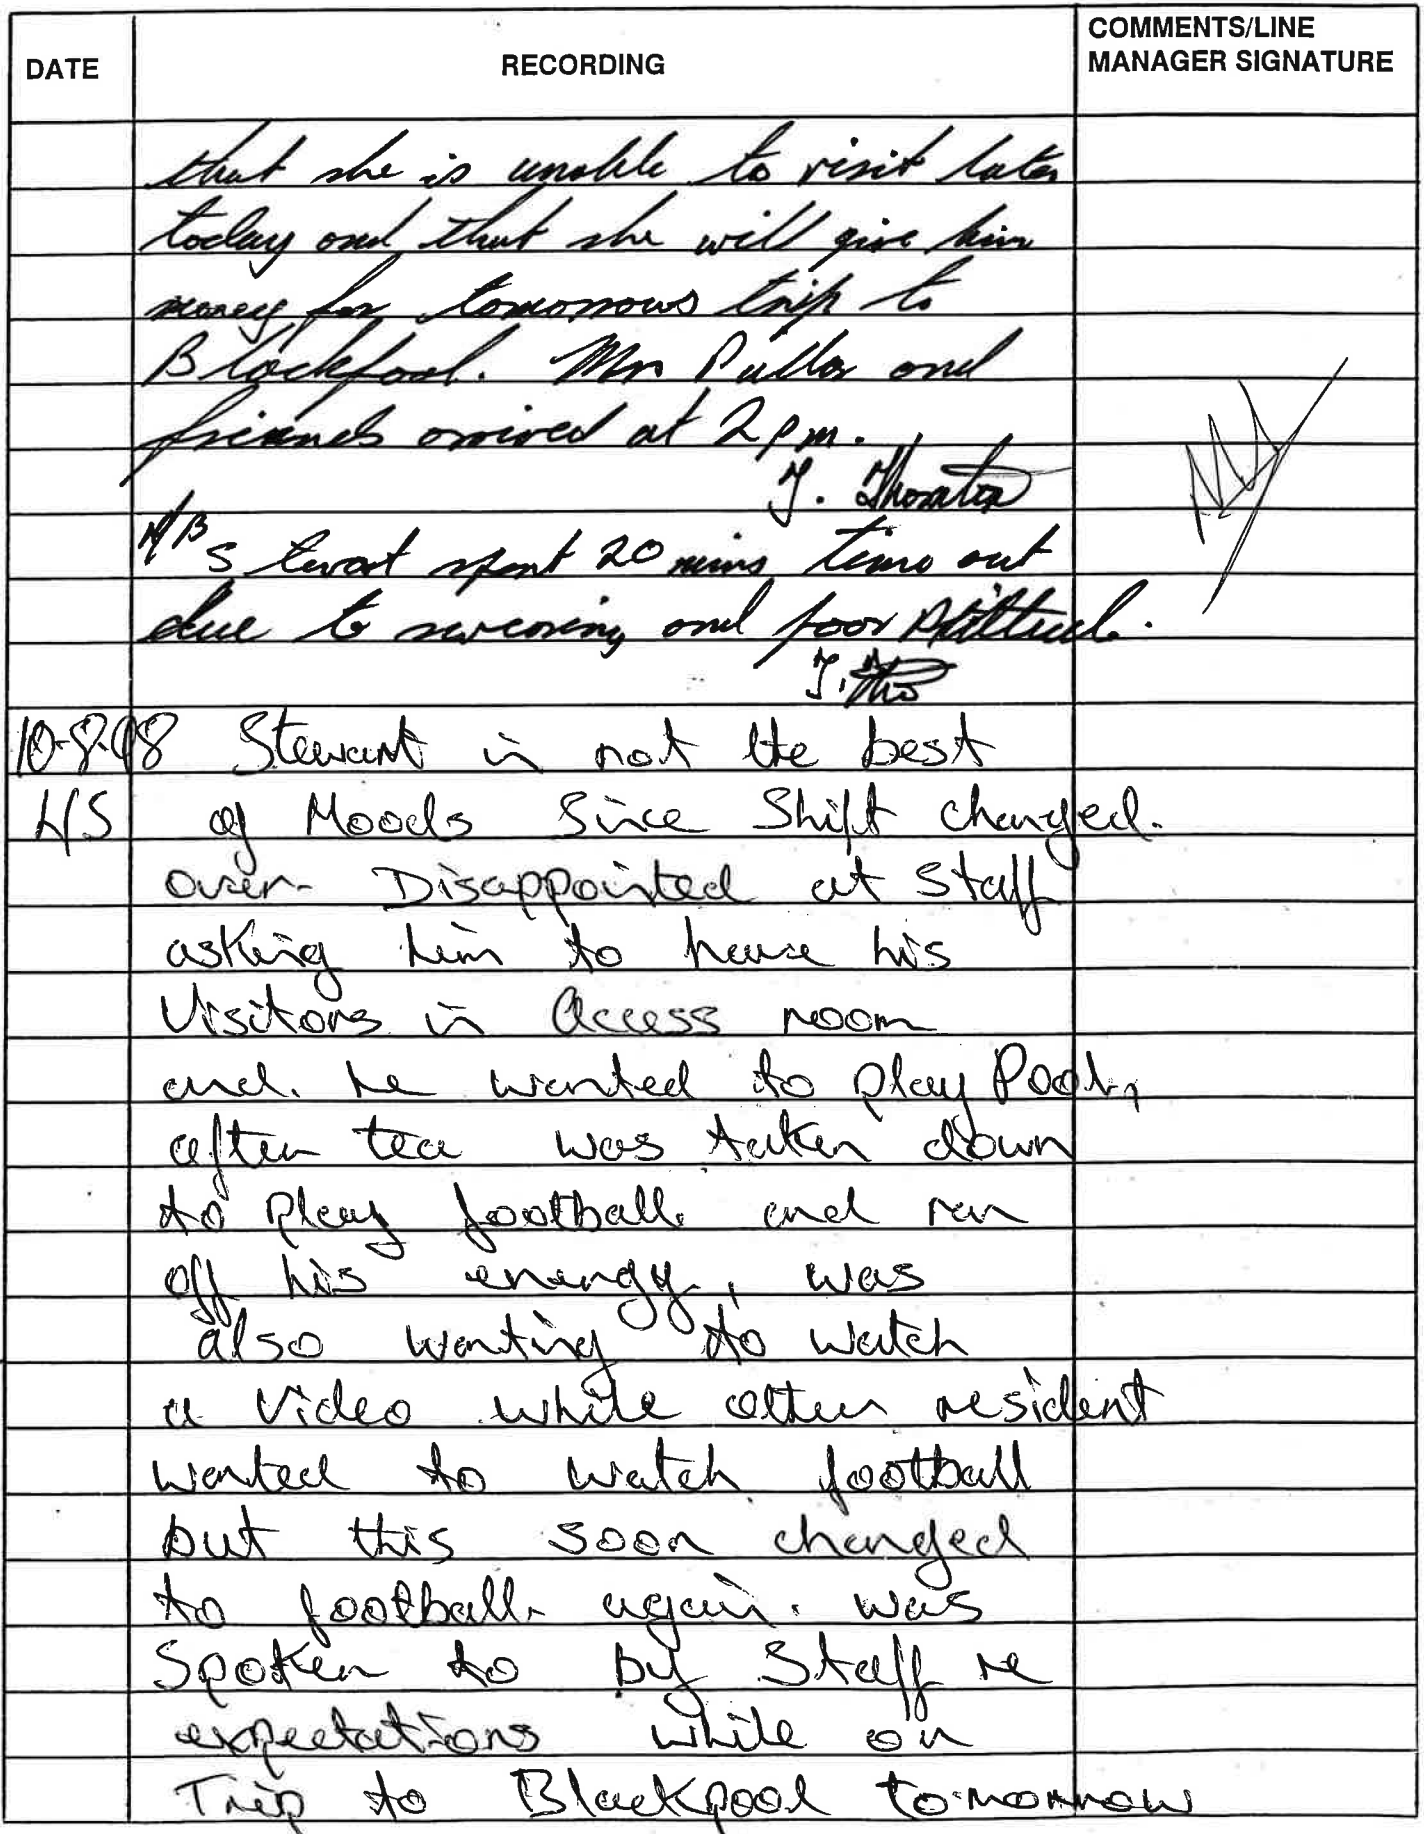 DATE
RECORDING
COMMENTS/LINE
MANAGER SIGNATURE
that she is unable to visit later
today and that she will give him
money for tomorrows trip to
Blackpool. Mr and
friends arrived at 2pm.
J. Thornton
N/B Stewart spent 20 mins time out
due to swearing and poor Attitude.
10-8-98 Stewart in not the best
L/S of Moods Since Shift changed.
over- Disappointed at staff
asking him to have his
Visitors in Access room
and. he wanted to play Pool,
after tea was taken down
to play football and ran
off his energy, was
also wanting to watch
a Video while other resident
wanted to watch football
but this soon changed
to football again. was
Spoken to by Staff re
expectations while on
Trip to Blackpool tomorrow